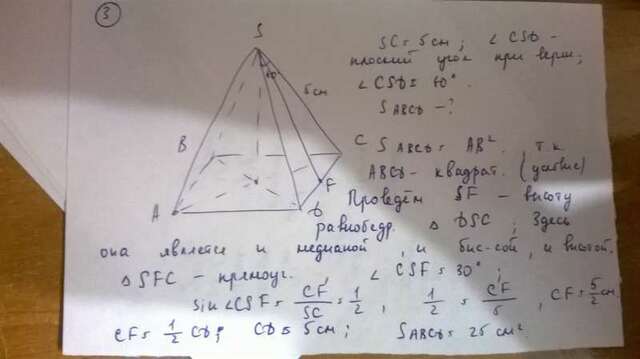 3
S
60°
5см
B
C
A
D
F
SC = 5см; ∠CSD -
плоский угол при верш;
∠CSD = 60°.
S ABCD - ?
S ABCD = AB², т.к
ABCD - квадрат. (условие)
Проведём SF - высоту
равнобедр. △ DSC; Здесь
она является и медианой, и бис-сой, и высотой.
△ SFC - прямоуг., ∠ CSF = 30°;
sin ∠CSF = CF/SC = 1/2, 1/2 = CF/5, CF = 5/2 см.
CF = 1/2 CD; CD = 5см; SABCD = 25 см²